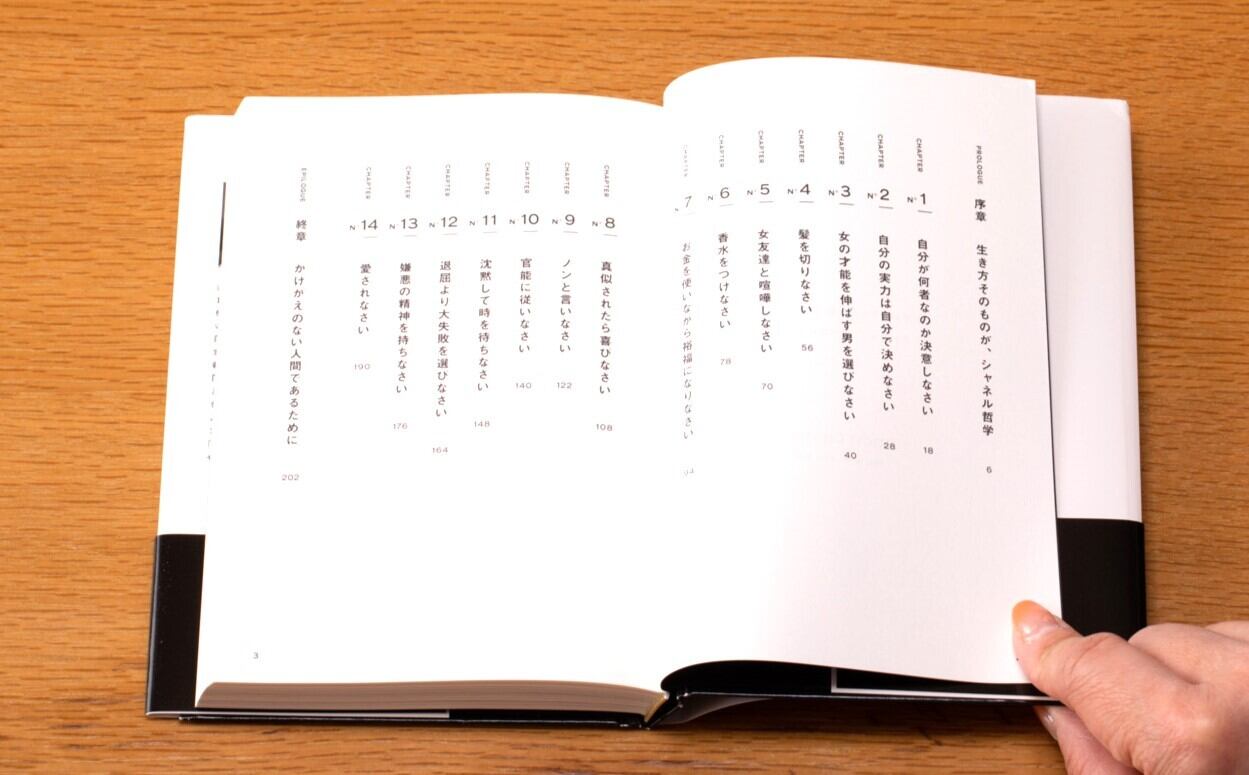 PROLOGUE 序章 生き方そのものが、シャネル哲学 6
CHAPTER N°1 自分が何者なのか決意しなさい 18
CHAPTER N°2 自分の実力は自分で決めなさい 28
CHAPTER N°3 女の才能を伸ばす男を選びなさい 40
CHAPTER N°4 髪を切りなさい 56
CHAPTER N°5 女友達と喧嘩しなさい 70
CHAPTER N°6 香水をつけなさい 78
CHAPTER N°7 お金を使いながら裕福になりなさい
CHAPTER N°8 真似されたら喜びなさい 108
CHAPTER N°9 ノンと言いなさい 122
CHAPTER N°10 官能に従いなさい 140
CHAPTER N°11 沈黙して時を待ちなさい 148
CHAPTER N°12 退屈より大失敗を選びなさい 164
CHAPTER N°13 嫌悪の精神を持ちなさい 176
CHAPTER N°14 愛されなさい 190
EPILOGUE 終章 かけがえのない人間であるために 202
3